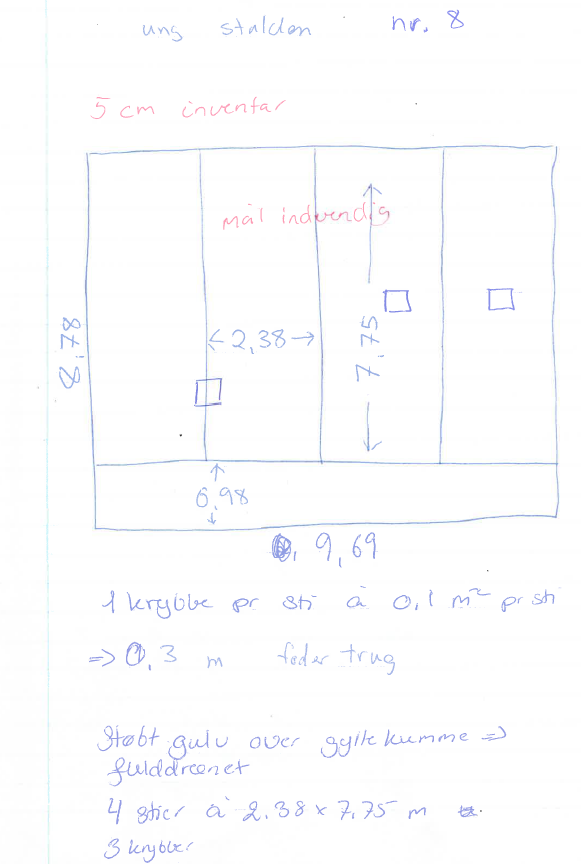 ung stalden nr. 8
5 cm inventar
mål indvendig
2,38
7,75
8,78
0,98
9,69
1 krybbe pr sti á 0,1 m² pr sti
=> 0,3 m foder trug
Støbt gulv over gyllekumme =>
fulddrænet
4 stier á 2.38 x 7,75 m
3 krybber